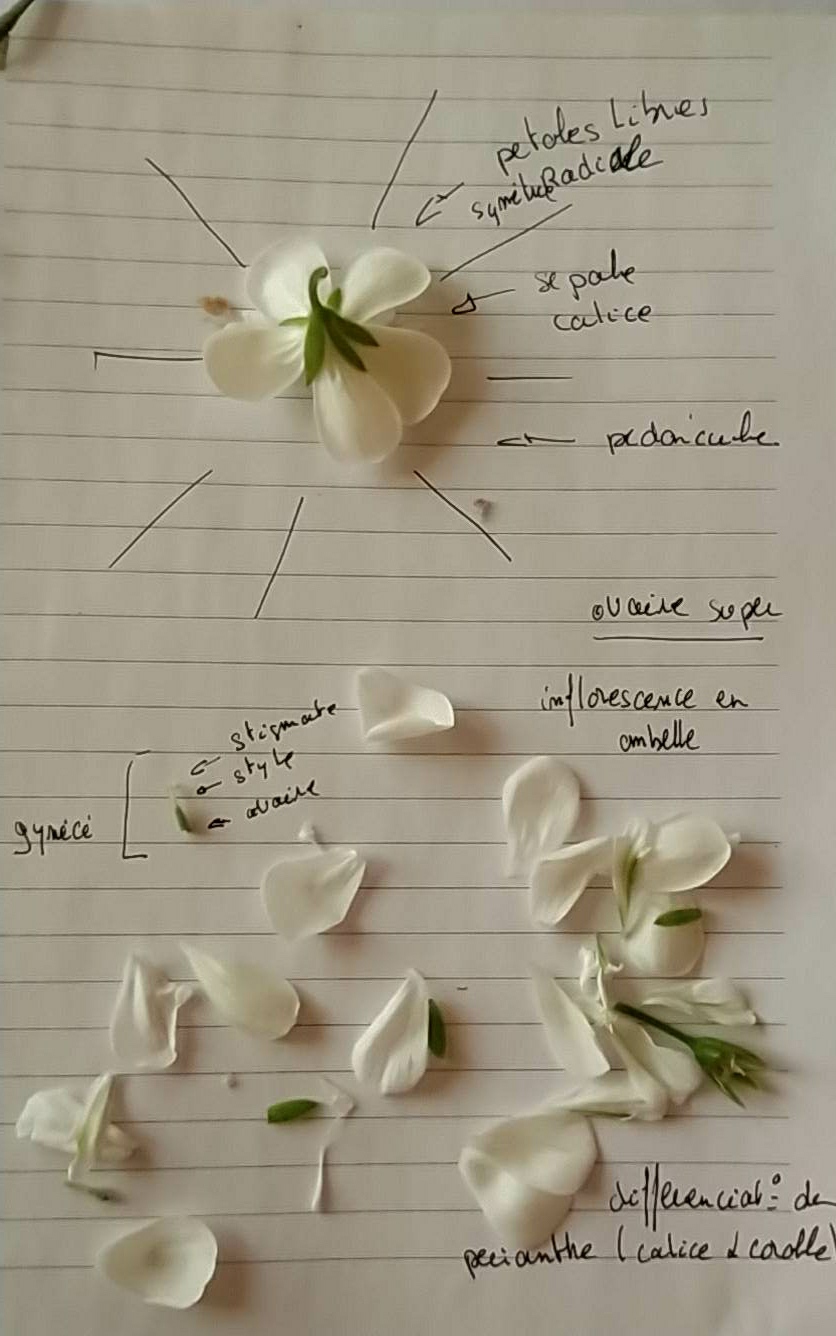 petales Libres
symétrie Radiale
sepale
calice
pedoncule
ovaire super
inflorescence en
ombelle
stigmate
style
ovaire
gynécé
différenciat° du
perianthe (calice & corolle)